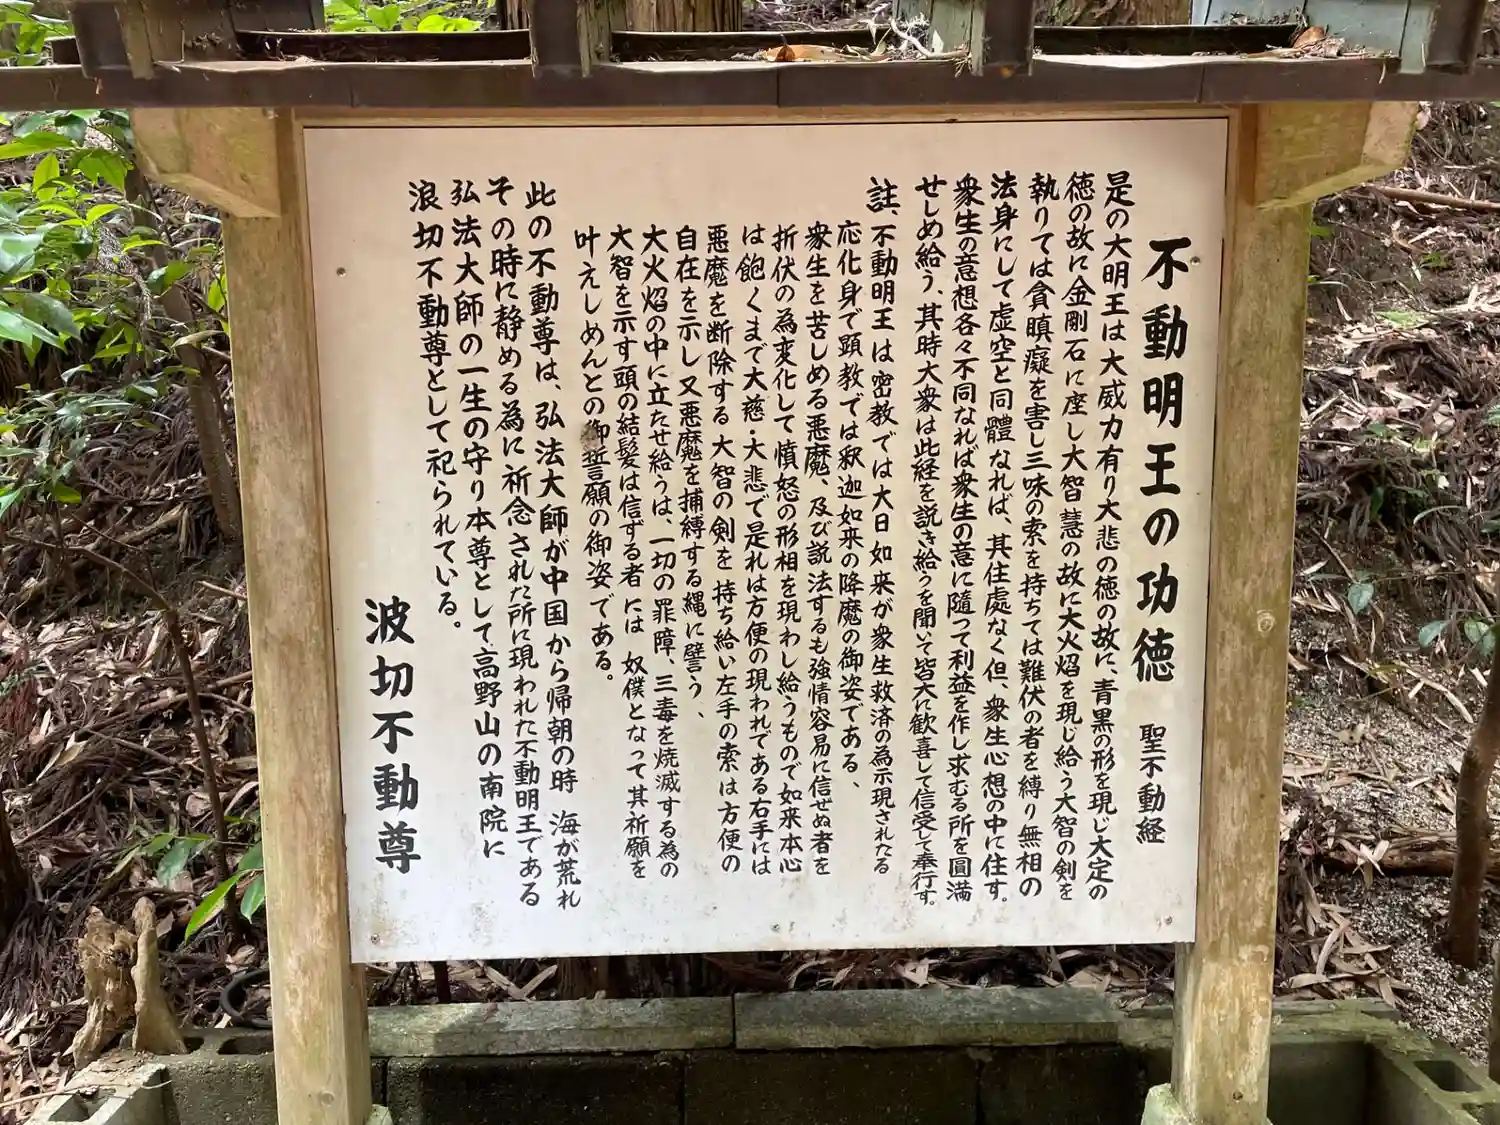 不動明王の功徳 聖不動経
是の大明王は大威力有り大悲の徳の故に、青黒の形を現じ大定の
徳の故に金剛石に座し大智慧の故に大火焰を現じ給う大智の剣を
執りては貪瞋癡を害し三味の索を持ちては難伏の者を縛り無相の
法身にして虚空と同體なれば、其住處なく但、衆生心想の中に住す。
衆生の意想各々不同なれば衆生の意に隨って利益を作し求むる所を圓満
せしめ給う、其時大衆は此経を説き給うを聞いて皆大に歓喜して信受して奉行す。
註、不動明王は密教では大日如来が衆生救済の為示現されたる
応化身で顕教では釈迦如来の降魔の御姿である、
衆生を苦しめる悪魔、及び説法するも強情容易に信ぜぬ者を
折伏の為変化して憤怒の形相を現わし給うもので如来本心
は飽くまで大慈・大悲で是れは方便の現われである右手には
悪魔を断除する大智の剣を持ち給い左手の索は方便の
自在を示し又悪魔を捕縛する縄に譬う、
大火焰の中に立たせ給うは、一切の罪障、三毒を焼滅する為の
大智を示す頭の結髪は信ずる者には奴僕となって其祈願を
叶えしめんとの御誓願の御姿である。
此の不動尊は、弘法大師が中国から帰朝の時 海が荒れ
その時に静める為に祈念された所に現われた不動明王である
弘法大師の一生の守り本尊として高野山の南院に
浪切不動尊として祀られている。
波切不動尊